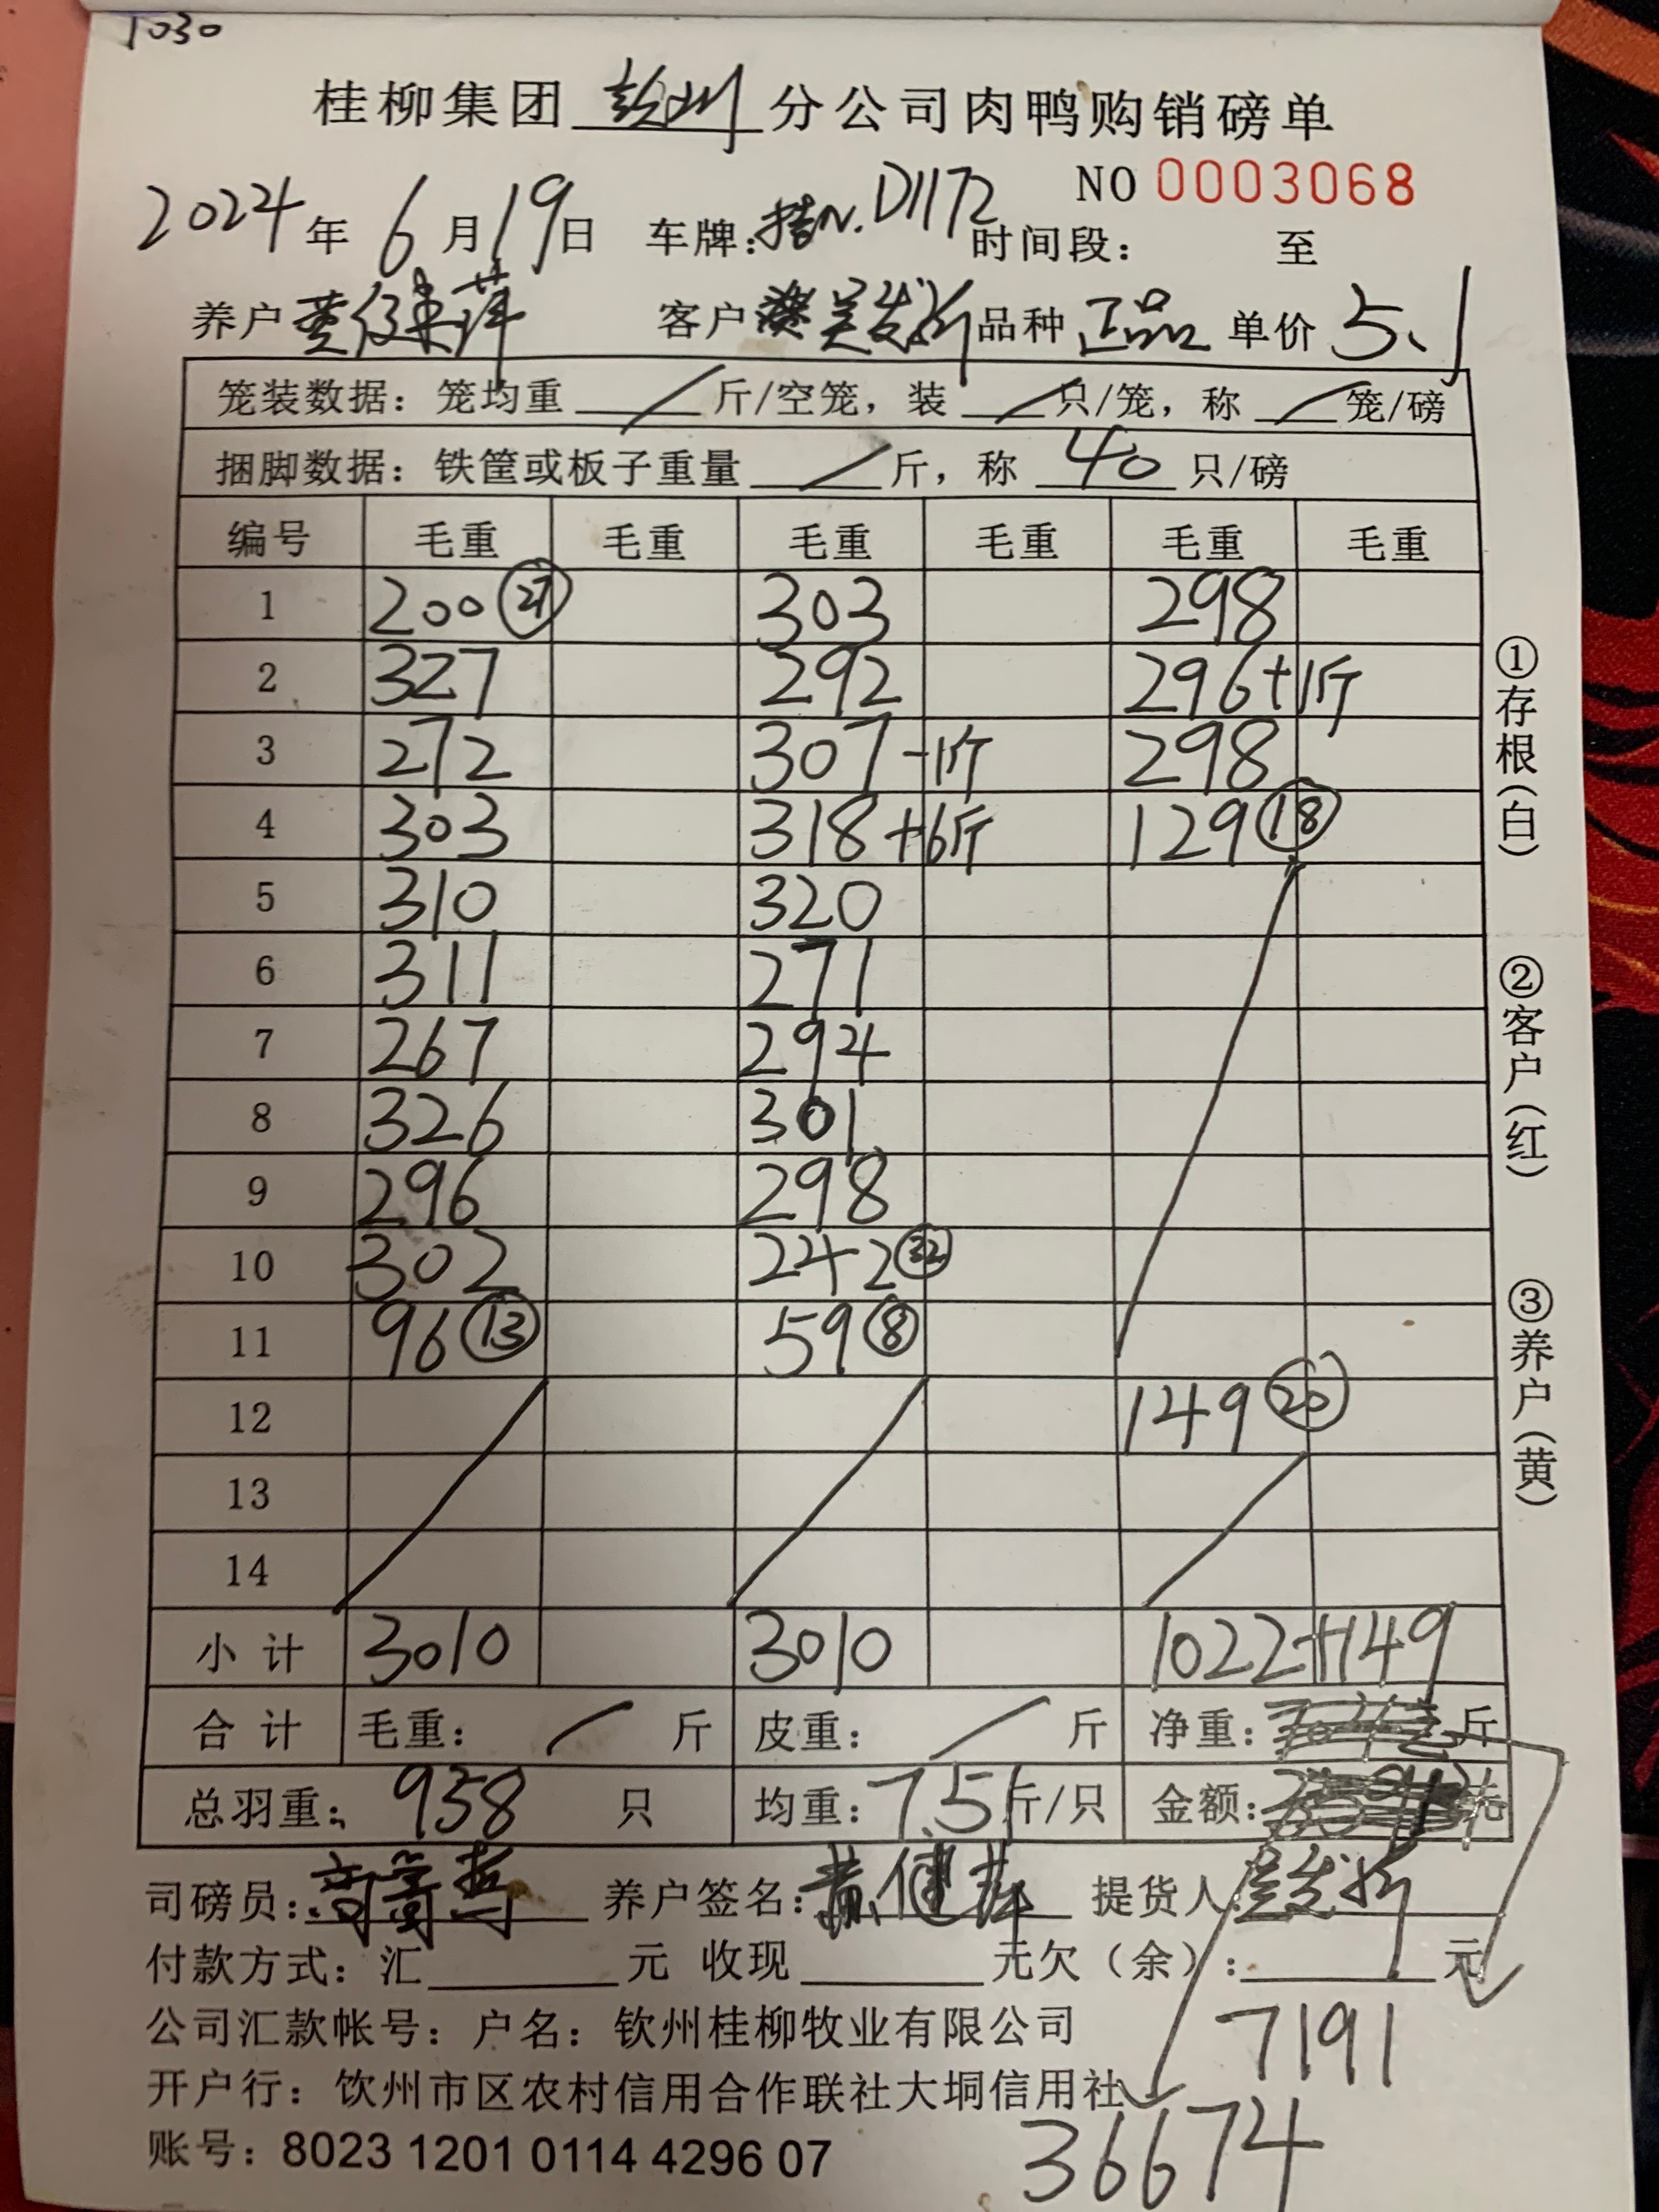 1030
桂柳集团 彭州 分公司肉鸭购销磅单
NO 0003068
2024 年 6 月 19 日 车牌: N.D1172 时间段: 至
养户 黄健萍 客户 吴发新 品种 正品 单价 5.1
笼装数据: 笼均重 / 斤/空笼, 装 / 只/笼, 称 / 笼/磅
捆脚数据: 铁筐或板子重量 / 斤, 称 40 只/磅
编号 毛重 毛重 毛重 毛重 毛重 毛重
1 200 (27) 303 298
2 327 292 296+1斤
3 272 307-1斤 298
4 303 318+6斤 129 (18)
5 310 320
6 311 271
7 267 294
8 326 301
9 296 298
10 302 242 (32)
11 96 (13) 59 (8)
12 149 (20)
13
14
小计 3010 3010 1022+149
合计 毛重: / 斤 皮重: / 斤 净重: 斤
总羽重: 958 只 均重: 7.51 斤/只 金额: 元
司磅员: 养户签名: 黄健萍 提货人: 吴发新
付款方式: 汇 元 收现 元欠(余): 元
公司汇款帐号: 户名: 钦州桂柳牧业有限公司
7191
开户行: 饮州市区农村信用合作联社大垌信用社
36674
账号: 8023 1201 0114 4296 07
①存根(白)
②客户(红)
③养户(黄)